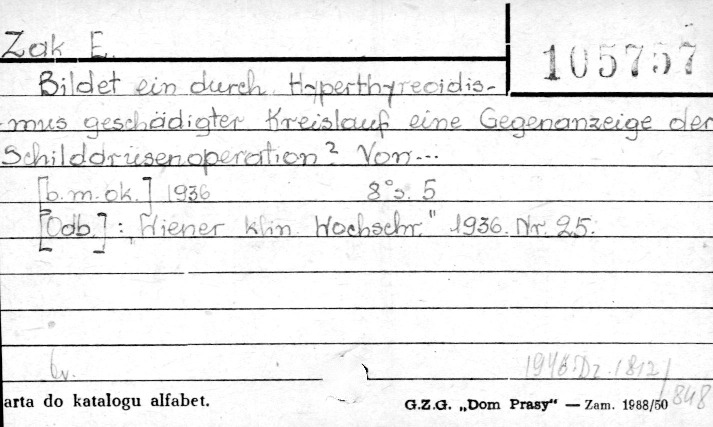 Zak E.
105757
Bildet ein durch Hyperthyreoidis-
mus geschädigter Kreislauf eine Gegenanzeige der
Schilddrüsenoperation? Von...
[b.m.ok.] 1936 8° s. 5
[Odb.]: „Wiener klin. Wochschr." 1936. Nr. 25.
1948 Dz. 1812/
848
arta do katalogu alfabet.
G.Z.G. „Dom Prasy" — Zam. 1988/50